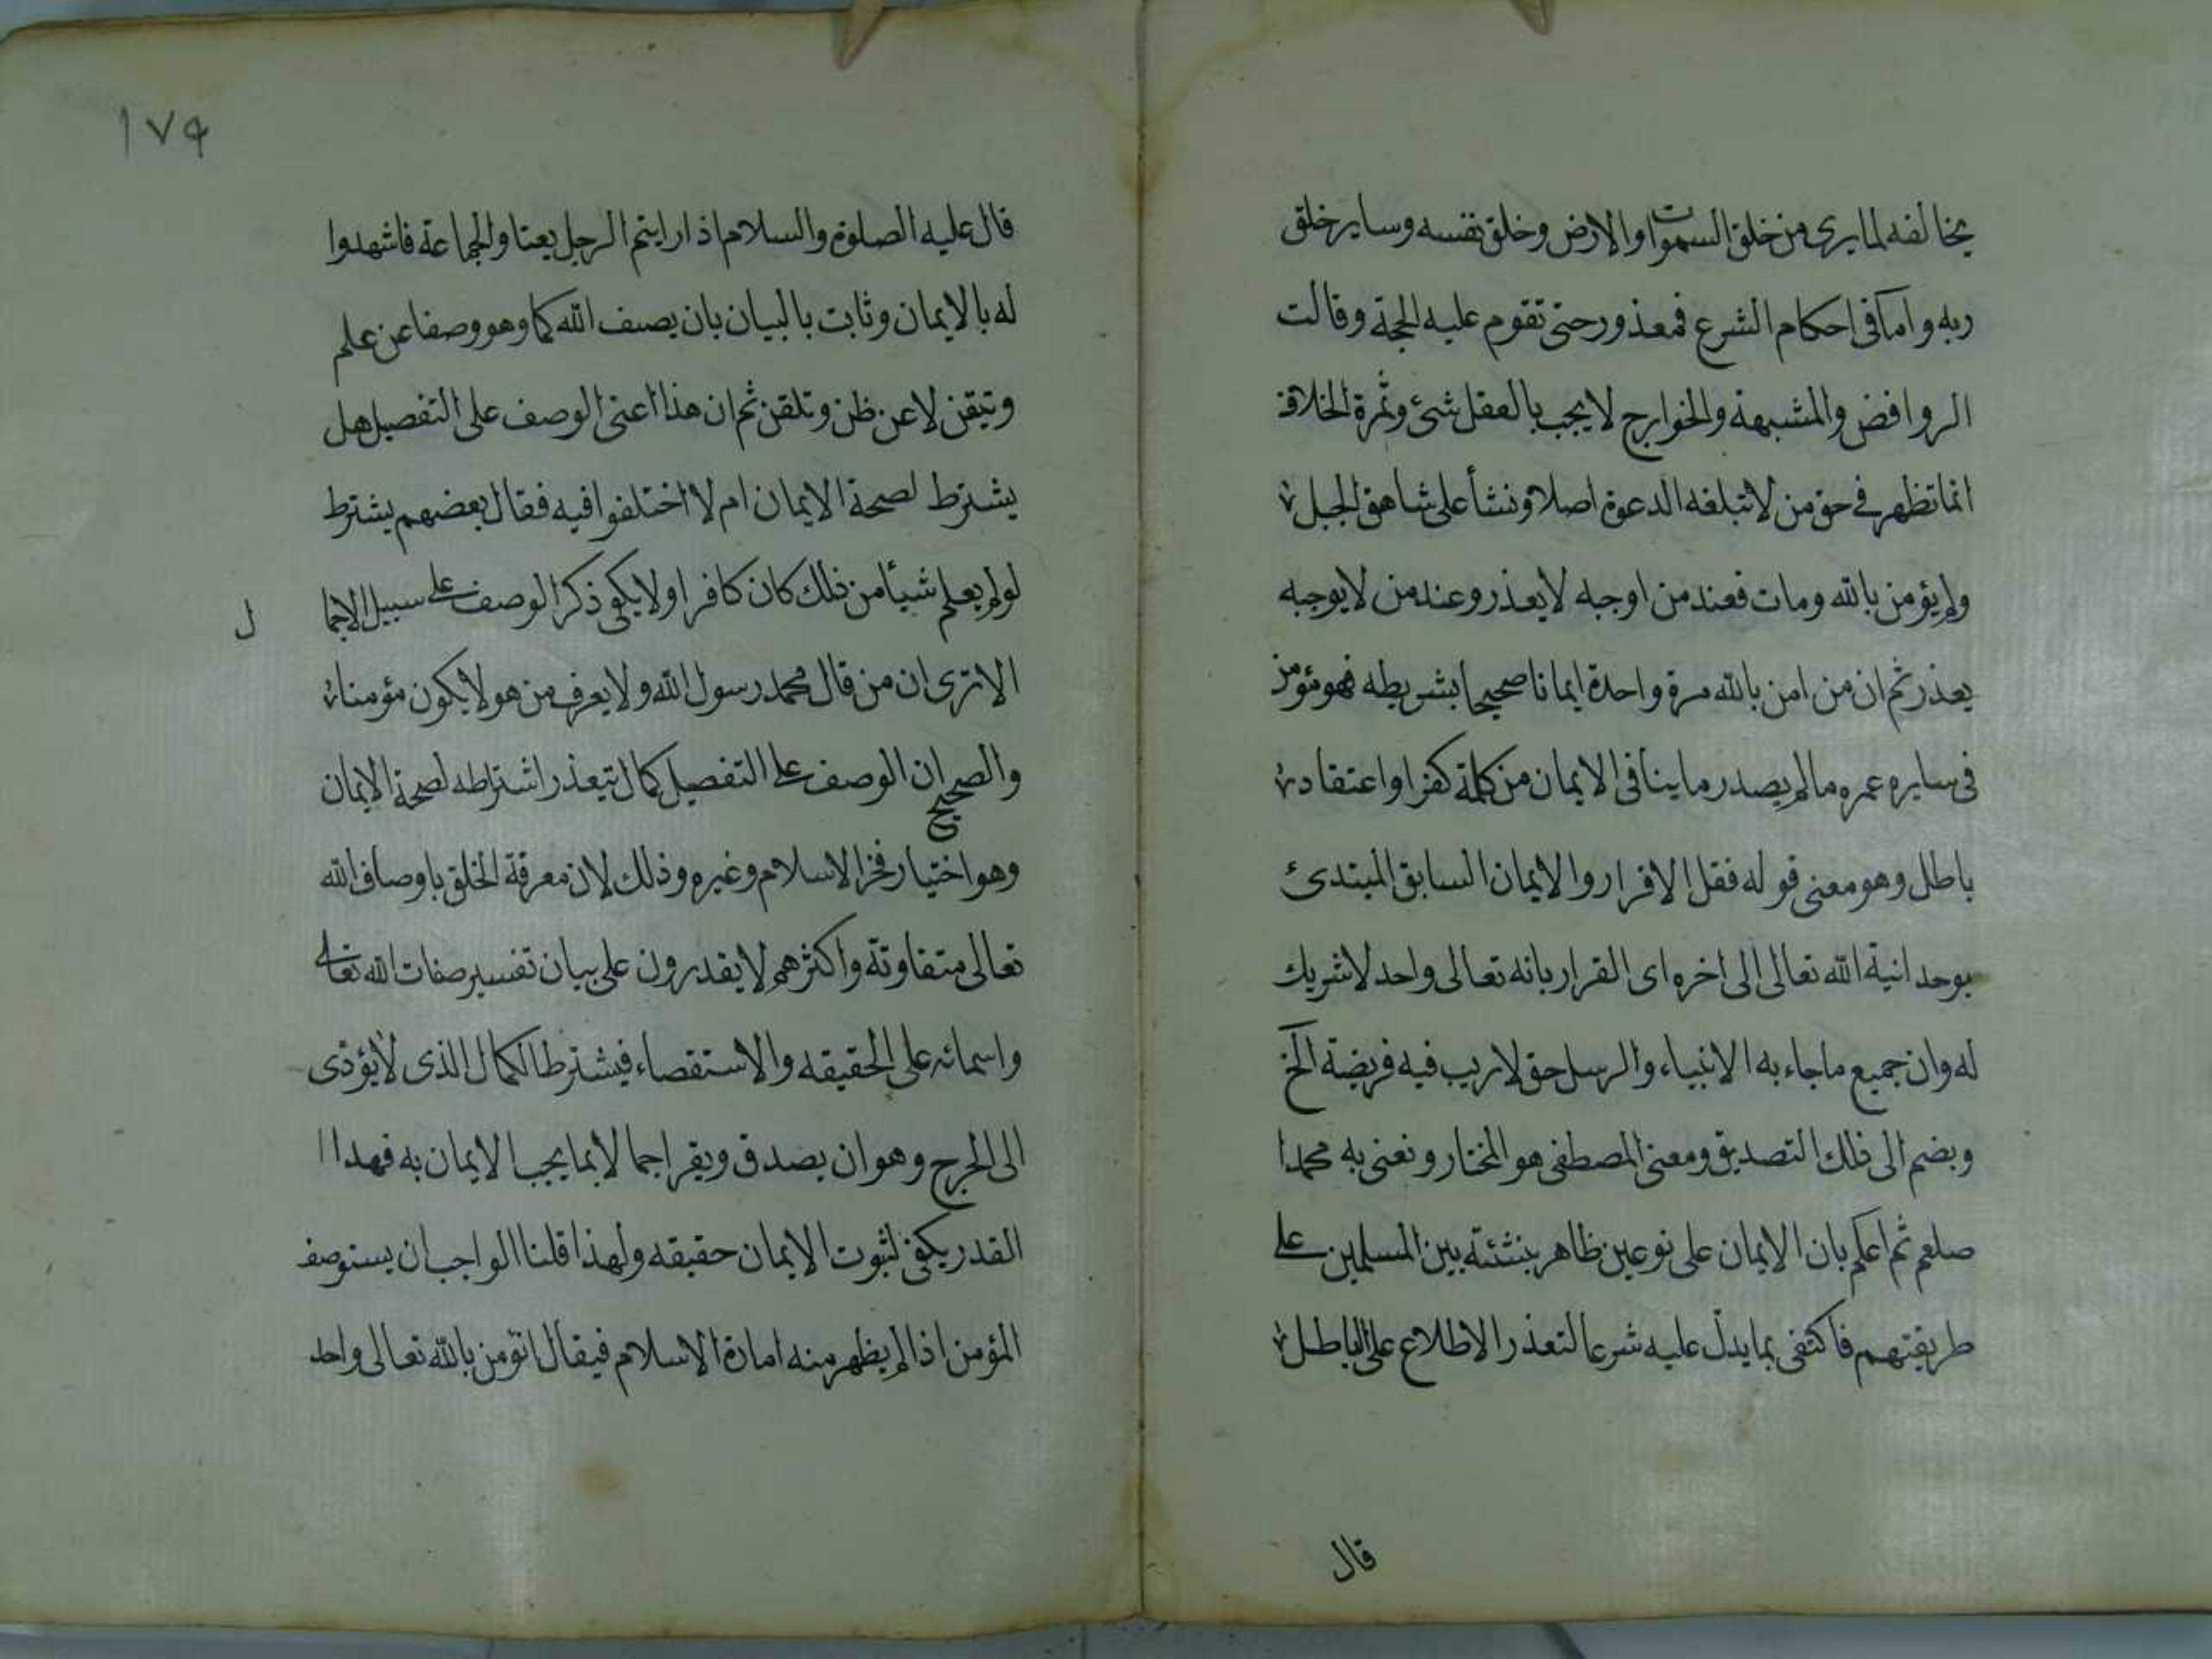 بخالفه لما يرى من خلق السموات والارض وخلق نفسه وساير خلق
ربه واما فى احكام الشرع فمعذور حتى تقوم عليه الحجة وقالت
الروافض والمشبهة والخوارج لا يجب بالعقل شئ وثمرة الخلاف
انما تظهر فى حق من لا تبلغه الدعوة اصلا ونشأ على شاهق الجبل
ولم يؤمن بالله ومات فعند من اوجبه لا يعذر وعند من لا يوجبه
يعذر ثم ان من امن بالله مرة واحدة ايمانا صحيحا بشريطه فهو مؤمن
فى سايره عمره مالم يصدر ما ينافى الايمان من كلمة كفر او اعتقاد
باطل وهو معنى قوله فقل الاقرار والايمان السابق المبتدئ
بوحدانية الله تعالى الى اخره اى القرار بانه تعالى واحد لا شريك
له وان جميع ما جاء به الانبياء والرسل حق لا ريب فيه فريضة الخ
ويضم الى ذلك التصديق ومعنى المصطفى هو المختار ونعنى به محمدا
صلعم ثم اعلم بان الايمان على نوعين ظاهر بنشئته بين المسلمين على
طريقتهم فاكتفى بما يدل عليه شرعا لتعذر الاطلاع على الباطل
قال
١٧٩
قال عليه الصلوة والسلام اذا رايتم الرجل يعتا والجماعة فاشهدوا
له بالايمان وثابت بالبيان بان يصف الله كما وهو وصفا عن علم
وتيقن لا عن ظن وتلقن ثم ان هذا اعنى الوصف على التفصيل هل
يشترط لصحة الايمان ام لا اختلفوا فيه فقال بعضهم يشترط
لو لم يعلم شيأ من ذلك كان كافرا ولا يكفى ذكر الوصف على سبيل الاجما ل
الا ترى ان من قال محمد رسول الله ولا يعرف من هو لا يكون مؤمنا
والصحيح ان الوصف على التفصيل كمال تيعذر اشتراطه لصحة الايمان
وهو اختيار فخر الاسلام وغيره وذلك لان معرفة الخلق باوصاف الله
تعالى متفاوتة واكثرهم لا يقدرون على بيان تفسير صفات الله تعالى
واسمائه على الحقيقه والاستقصاء فيشترط الكمال الذى لا يؤدى
الى الحرج وهو ان يصدق ويقر اجمالا بما يجب الايمان به فهدا ا
القدر يكفى لثبوت الايمان حقيقه ولهذا قلنا الواجب ان يستوصف
المؤمن اذا لم يظهر منه امارة الاسلام فيقال اتؤمن بالله تعالى واحد